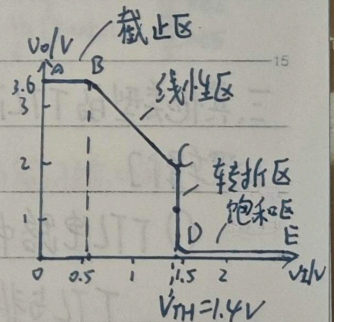 Vo/V
截止区
A
B
15
3.6
3
线性区
2
C
转折区
1
饱和区
D
E
0
0.5
1
1.5
2
VI/V
VTH=1.4V